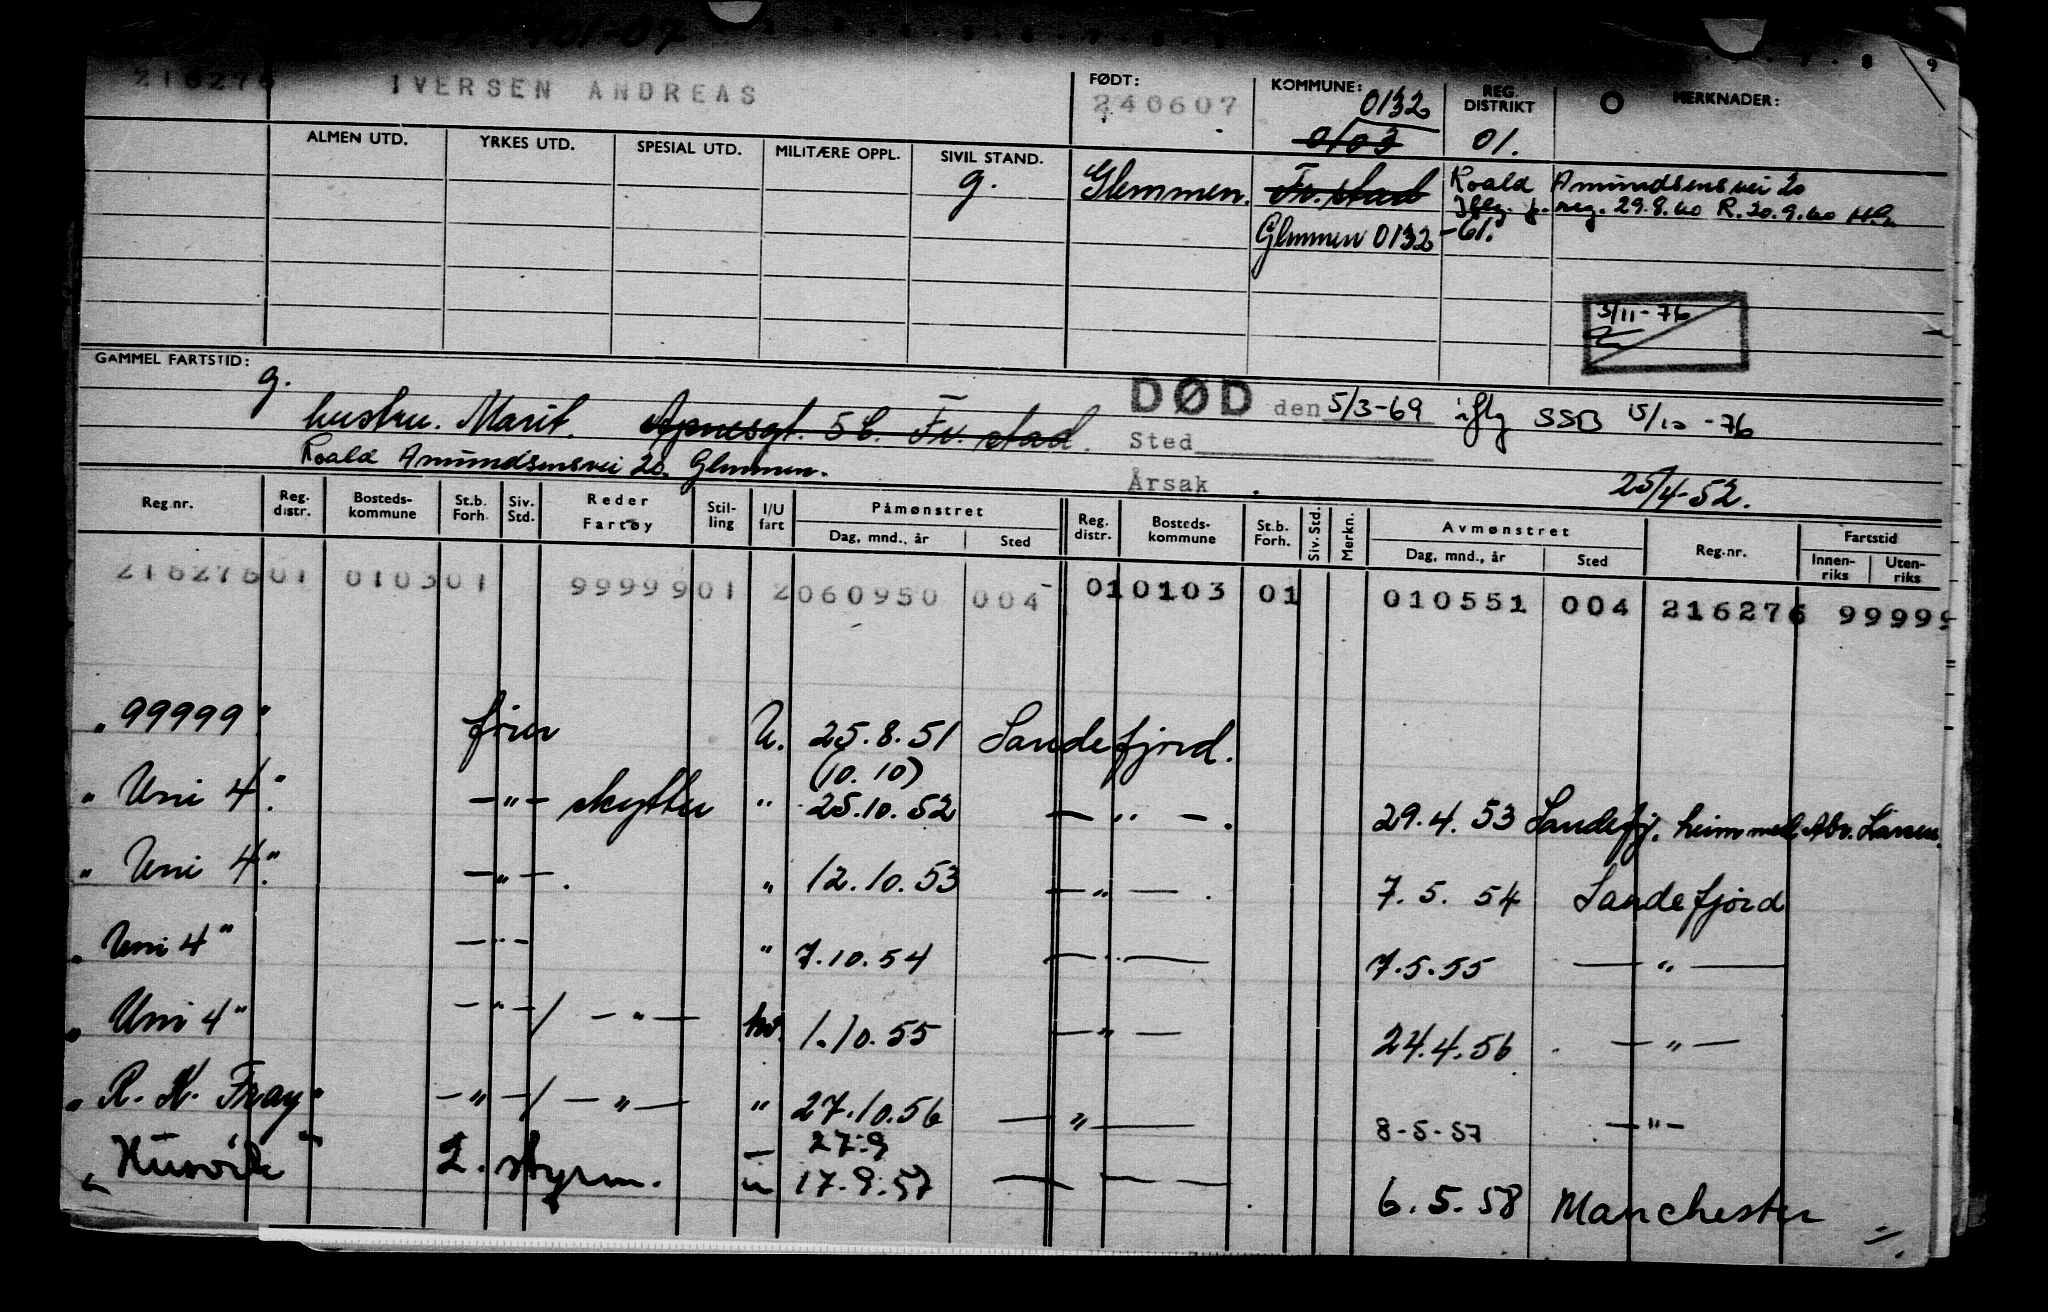 01-07
216276 IVERSEN ANDREAS FØDT: 240607 KOMMUNE: 0132 0103 REG. DISTRIKT 01. O MERKNADER:
ALMEN UTD. YRKES UTD. SPESIAL UTD. MILITÆRE OPPL. SIVIL STAND.
g. Glemmen. Fr.stad Roald Amundsensvei 20
Iflg. f. reg. 29.8.60 R. 20.9.60
Glemmen 0132 -61.
3/11-76
GAMMEL FARTSTID:
g.
hustru. Marit. Apnesgt. 5 b. Fr. stad.
DØD den 5/3-69 iflg SSB 15/10-76
Roald Amundsensvei 20. Glemmen.
Sted
Årsak
25/4-52.
Reg.nr. Reg. distr. Bosteds-kommune St.b. Forh. Siv. Std. Reder Fartøy Stilling I/U fart Påmønstret Dag, mnd., år Sted Reg. distr. Bosteds-kommune St.b. Forh. Siv. Std. Merkn. Avmønstret Dag, mnd., år Sted Reg.nr. Fartstid Innen-riks Uten-riks
216276 01 0103 01 99999 01 2 060950 004 01 0103 01 010551 004 216276 99999
"99999" U. 25.8.51 Sandefjord.
(10.10)
"Uni 4." -"- skytter " 25.10.52 -"-. 29.4.53 Sandefj. heim med Abr. Larsen.
"Uni 4." -"-. " 12.10.53 -"-. 7.5.54 Sandefjord
"Uni 4" -"- " 7.10.54 -"- 7.5.55 -"-
"Uni 4" -"-/ -"- 1.10.55 -"- 24.4.56 . -"-
" -"-/ -"- " 27.10.56 -"- 8-5-57 -"-
27.9
"Husvik" 2. styrm. u 17.9.57 - - - 6.5.58 Manchester